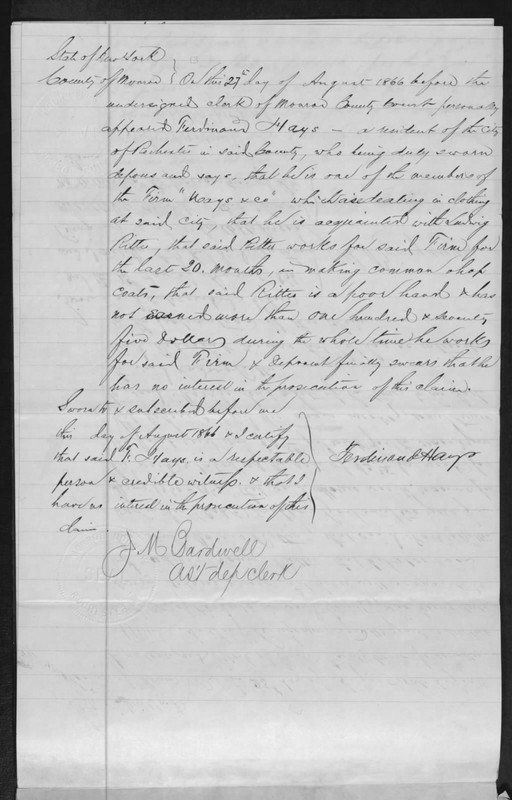 State of New York
County of Monroe } On this 27th day of August 1866 before the
undersigned clerk of Monroe County Court personally
appeared Ferdinand Hays – a resident of the City
of Rochester in said County, who being duly sworn
deposes and says, that he is one of the members of
the Firm "Hays & Co" which is dealing in clothing
at said city, that he is acquainted with Ludwig
Ritter, that said Ritter works for said Firm for
the last 20. Months, in making common shop
coats, that said Ritter is a poor hand & has
not earned more than one hundred & seventy
five Dollars during the whole time he works
for said Firm & deponent finally swears that he
has no interest in the prosecution of this claim.
Sworn to & subscribed before me
this day of August 1866 & I certify
that said F. Hays is a respectable
person & credible witness & that I
have no interest in the prosecution of this
claim.
Ferdinand Hays
J M Bardwell
as't dep clerk